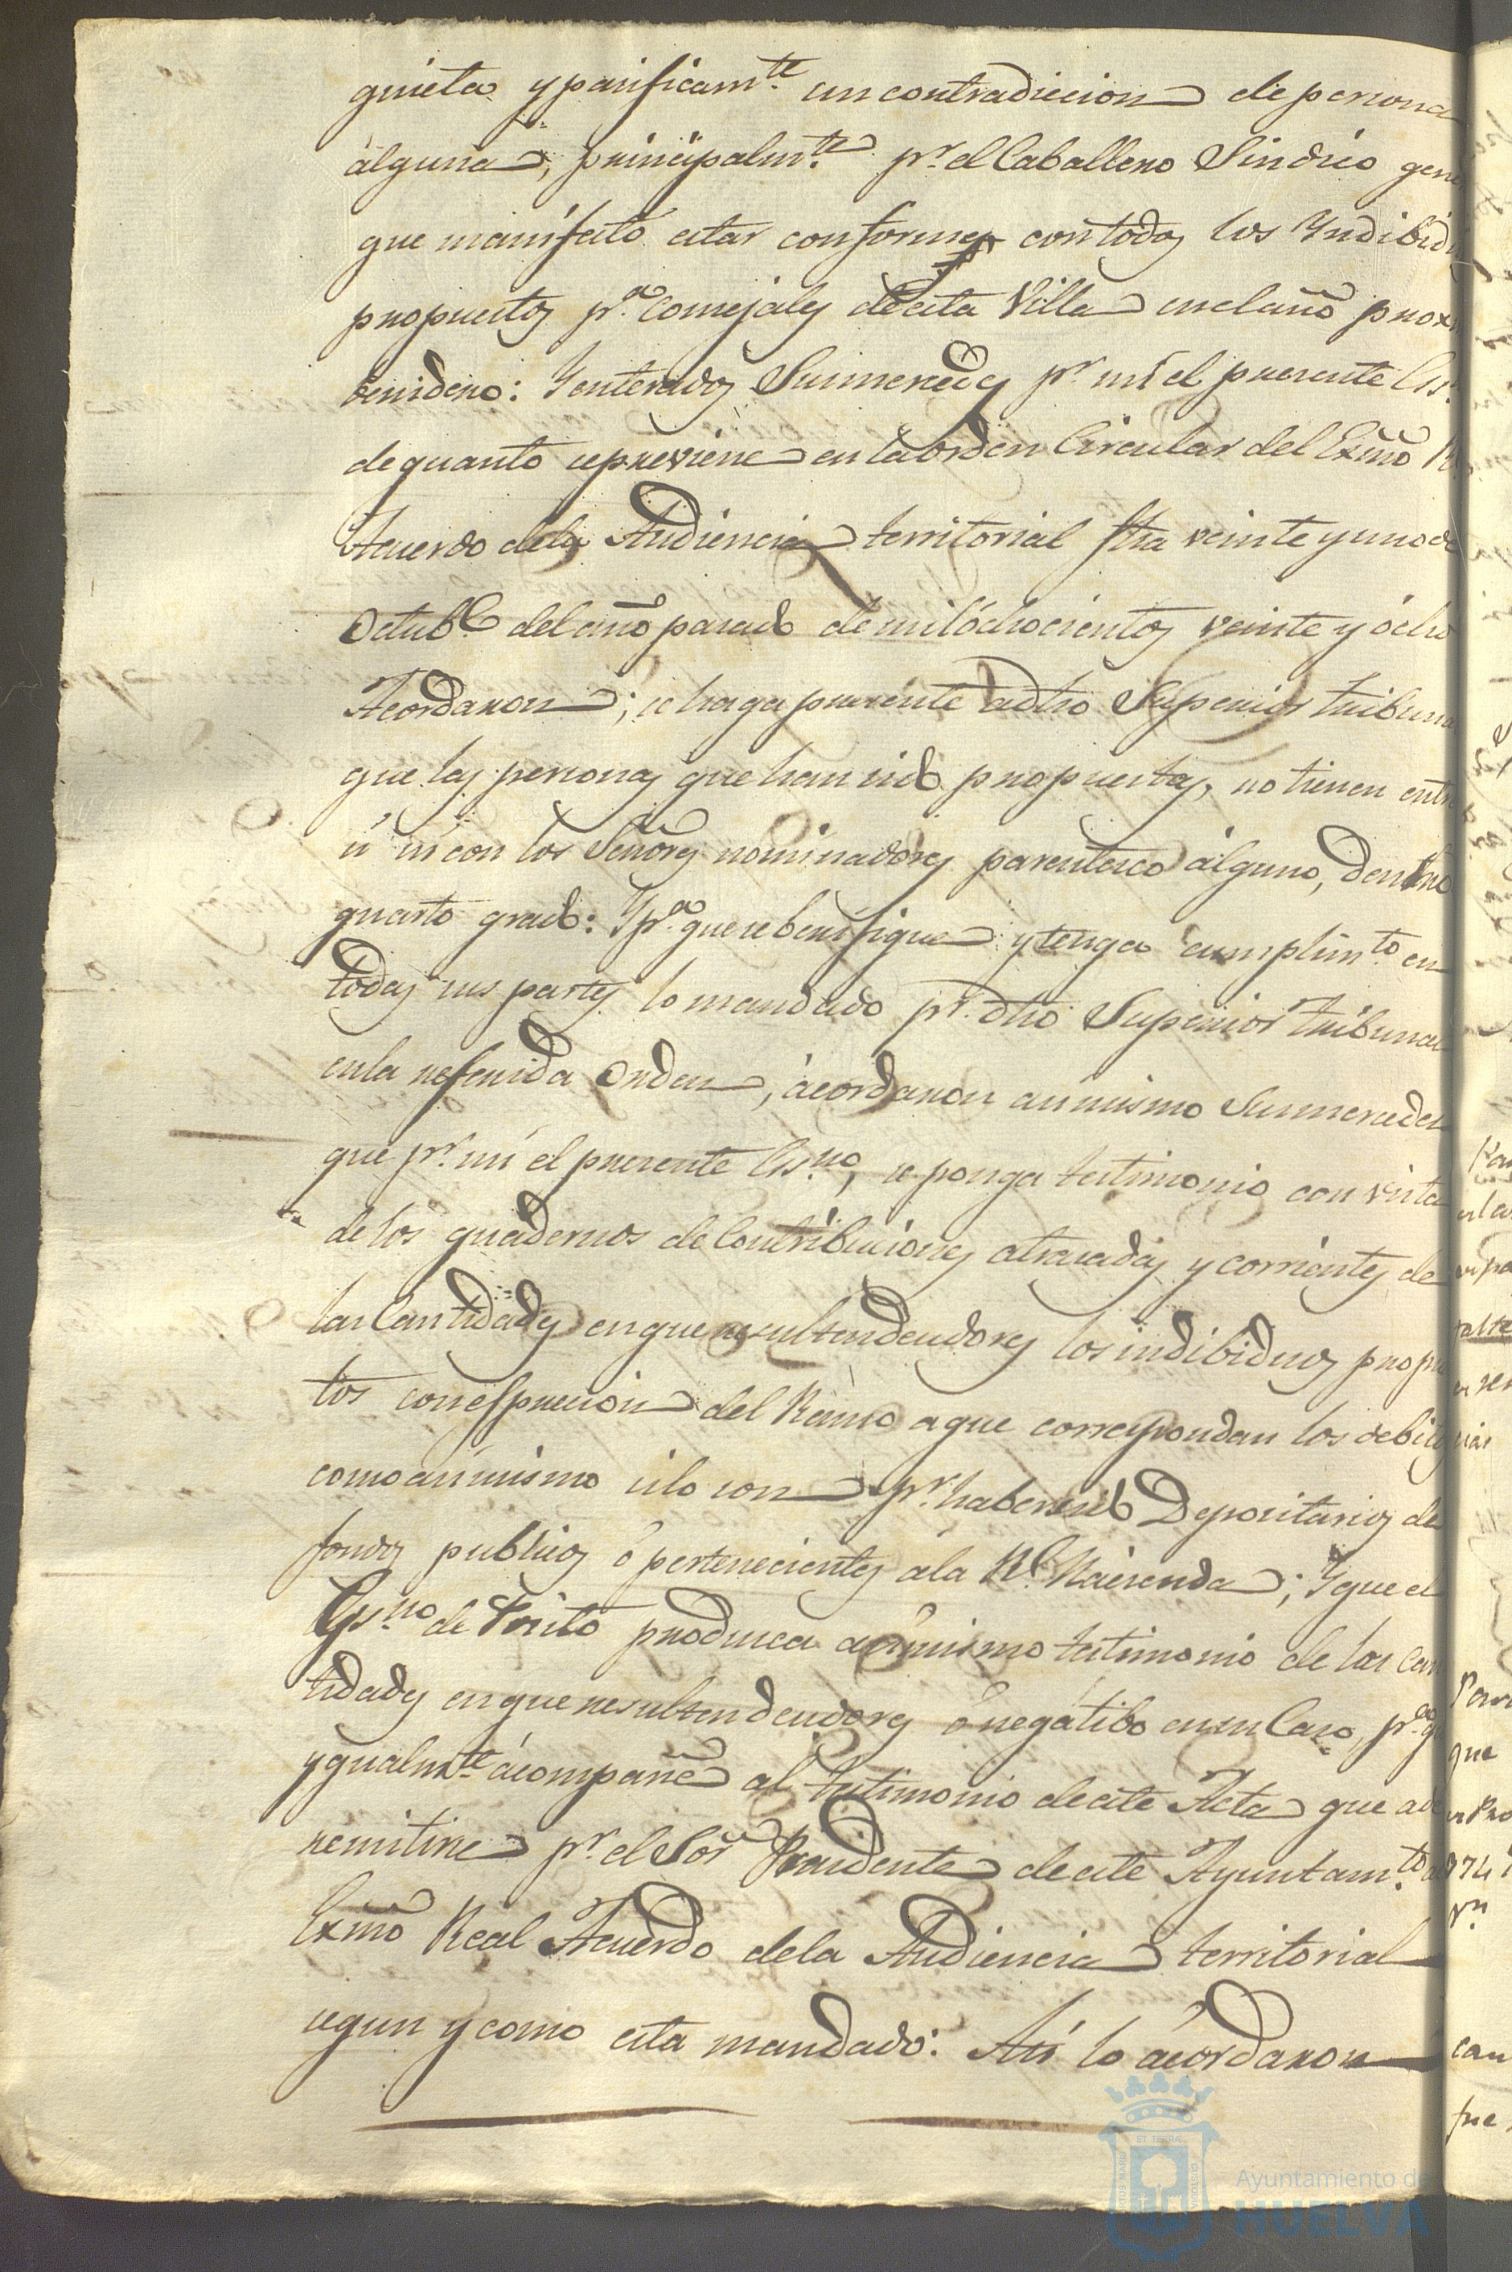 quieta y pacificamte. sin contradiccion de persona
alguna, principalmte. pr. el Caballero Sindico gene
que manifestó estar conforme con todos los Yndibidu
propuestos pa. Consejales de esta Villa en el año proxi
benidero: Y enterados Sus mercedes pr. mi el presente Es.
de quanto se previene en la orden Circular del Exmo R.
Acuerdo de la Audiencia territorial fha veinte y uno de
Octube. del año pasado de mil óchocientos veinte y ócho
Acordaron; se haga presente a dho Superior tribuna
que las personas que han sido propuestas, no tienen entre
si ni con los Señores nominadores parentesco álguno, dentro
quarto grado: Y pa. que se berifique y tenga cumplimto. en
todas sus partes lo mandado pr. dho Superior tribunal
en la referida Orden, ácordaron asi mismo Sus mercedes
que pr. mi el presente Esno., se ponga testimonio con vista
de los quadernos de Contribuciones atrasadas y corrientes de
las Cantidades en que resulten deudores los indibiduos propues
tos con espresion del Ramo a que correspondan los debitos
como asi mismo si lo son pr. haber sido Depositarios de
fondos publicos ó pertenecientes á la Rl. Hacienda; Y que el
Esno. de Posito produzca asi mismo testimonio de las Can
tidades en que resulten deudores ó negatibo en su Caso, pa. q
ygualmte. ácompañe al testimonio de este Acta que a de
remitirse pr. el Sor. Presidente de este Ayuntamto. al
Exmo Real Acuerdo de la Audiencia territorial
segun y como esta mandado: Asi lo ácordaron
Ayuntamiento de
HUELVA